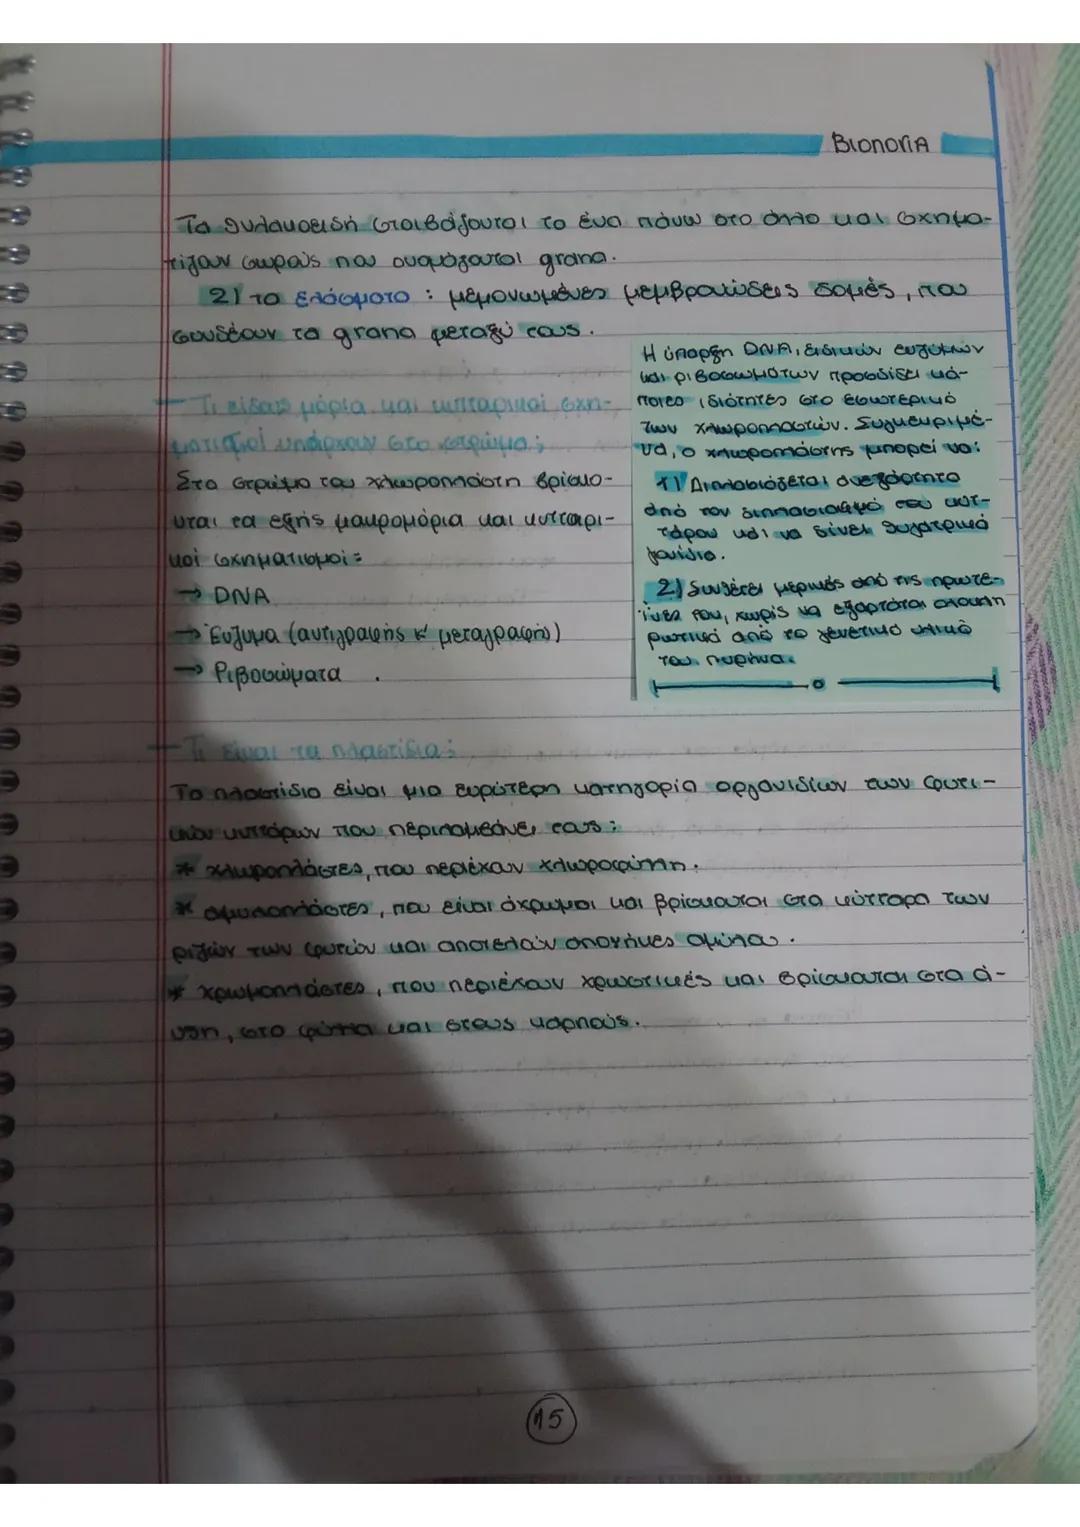 Βιολογία
Τα θυλακοειδή στοιβάζονται το ένα πάνω στο άλλο και σχημα-
τίζουν σωρούς που ονομάζονται grana.
2) τα ελάσματα : μεμονωμένες μεμβρανώδεις δομές, που
συνδέουν τα grana μεταξύ τους.
- Τι είδους μόρια και κυτταρικοί σχη-
ματισμοί υπάρχουν στο στρώμα;
Στο στρώμα του χλωροπλάστη βρίσκο-
νται τα εξής μακρομόρια και κυτταρι-
κοί σχηματισμοί:
→ DNA
→ Ένζυμα (αντιγραφής κ' μεταγραφής)
→ Ριβοσώματα .
Η ύπαρξη DNA, ειδικών ενζύμων
και ριβοσωμάτων προσδίδει κά-
ποιες ιδιότητες στο εσωτερικό
των χλωροπλαστών. Συγκεκριμέ-
να, ο χλωροπλάστης μπορεί να:
1) Διπλασιάζεται ανεξάρτητα
από τον διπλασιασμό του κυτ-
τάρου και να δίνει θυγατρικά
γονίδια.
2) Συνθέτει μερικές από τις πρωτε-
ΐνες του, χωρίς να εξαρτάται απόλυτα
από το γενετικό υλικό
του πυρήνα.
- Τι είναι τα πλαστίδια;
Τα πλαστίδια είναι μια ευρύτερη κατηγορία οργανιδίων των φυτι-
κών κυττάρων που περιλαμβάνει τους:
* χλωροπλάστες, που περιέχουν χλωροφύλλη.
* αμυλοπλάστες, που είναι άχρωμοι και βρίσκονται στα κύτταρα των
ριζών των φυτών και αποτελούν αποθήκες αμύλου.
* χρωμοπλάστες, που περιέχουν χρωστικές και βρίσκονται στα ά-
νθη, στα φύλλα και στους καρπούς.
15